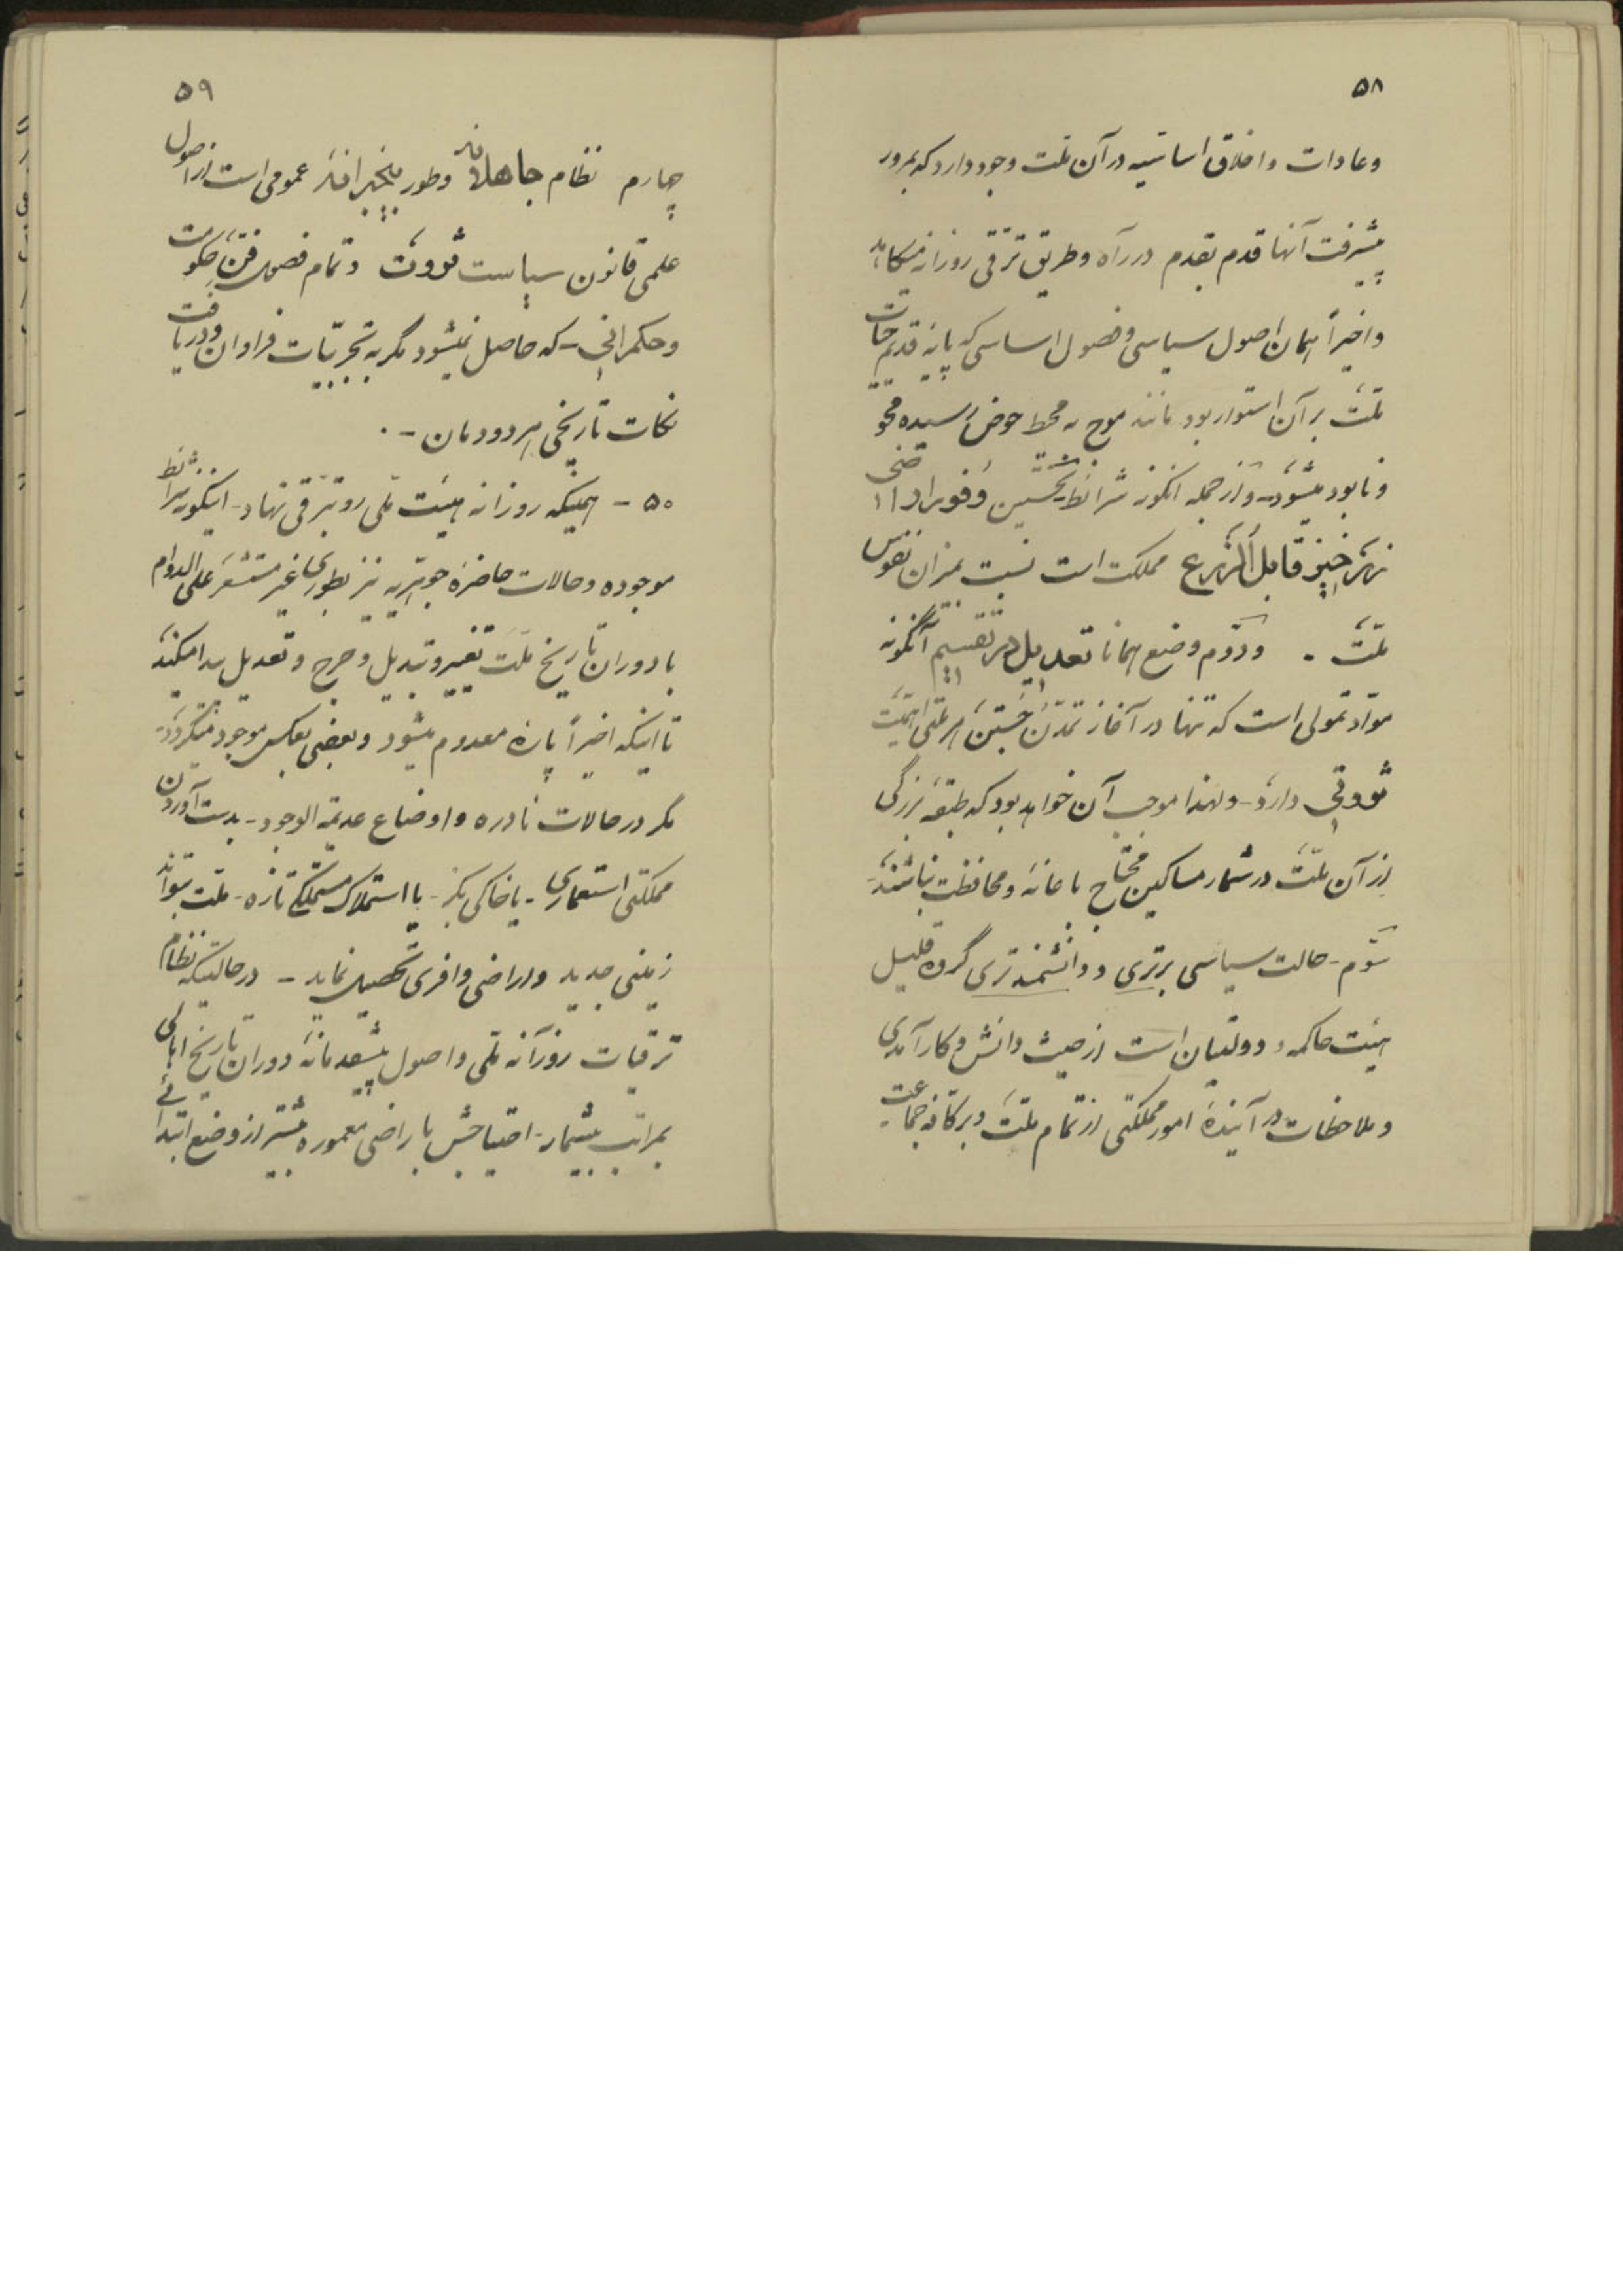 ۵۸
وعادات واخلاق اساسیه در آن ملت وجود دارد که بمرور
پیشرفت آنها قدم بقدم در راه وطریق ترقی روزانه میکاهد
واخیراً همان اصول سیاسی وفصول اساسی که پایهٔ قدیم حیات
ملت بر آن استوار بود مانند موج به محیط حوض رسیده محو
ونابود میشود - واز جمله آنگونه شرائط نخستین وفور اراضی
زرخیز قابل الزرع مملکت است نسبت بمیزان نفوس
ملت . ودوم وضع همانا تعدیل در تقسیم آنگونه
مواد تمولی است که تنها در آغاز تمدن هر ملتی اهمیت
ثروتی دارد - ولهذا موجب آن خواهد بود که طبقهٔ بزرگی
از آن ملت در شمار مساکین محتاج باعانه ومحافظت نباشند
سوم - حالت سیاسی برتری ودانشمندتری گروه قلیل
هیئت حاکمه ودولتیان است از حیث دانش وکارآمدی
وملاحظات در آیندهٔ امور مملکتی از تمام ملت وبر کافه جماعت
۵۹
چهارم نظام جاهلانه وطور بیخبرانهٔ عمومی است از اصول
علمی قانون سیاست ثروت وتمام فصول فن حکومت
وحکمرانی - که حاصل نمیشود مگر به تجربیات فراوان ودریافت
نکات تاریخی هر دودمان - .
۵۰ - همینکه روزانه هیئت ملی رو بترقی نهاد - اینگونه شرائط
موجوده وحالات حاضرهٔ جوهریه نیز بطوری غیر مستشعر علی الدوام
با دوران تاریخ ملت تغییر وتبدیل وجرح وتعدیل پیدا میکند
تا اینکه اخیراً پارهٔ معدوم میشود وبعضی بعکس موجود میگردد -
مگر در حالات نادره واوضاع عدیمة الوجود - بدست آوردن
مملکتی استعماری - یا خاکی بکر - یا استملاک مستملکهٔ تازه - ملت بتواند
زمینی جدید واراضی وافری تحصیل نماید - در حالتیکه نظام
ترقیات روزانه ملی واصول پیشقدمانهٔ دوران تاریخ اهالی
بمراتب بیشمار - احتیاجش باراضی معموره بیشتر از وضع ابتدائی